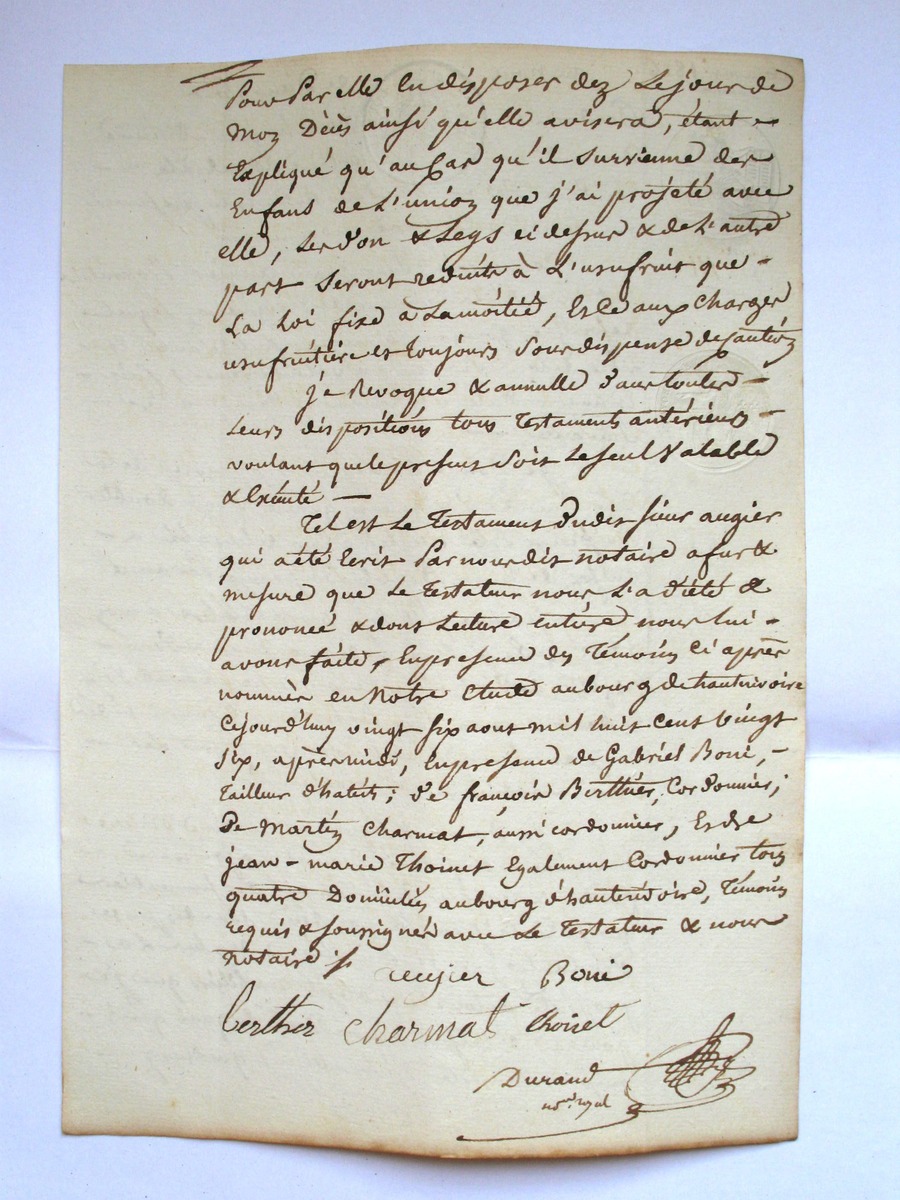 Pour Par elle En disposer dez Le jour de
moz Décès ainsi qu'elle avisera, étant
Expliqué qu'au Cas qu'il survienne des
Enfans de L'unioz que j'ai projeté avec
elle, Les d'on & Legs ci dessus & de L'autre
part Seront reduits à L'usufruit que
La Loi fixe à La moitié, Et Ce aux charges
usufruitières et toujours Sous dispense de Cautioz
je Revoque & annulle d'ans toutes
Leurs dispositions tous Testaments antérieurs
voulant que le present Soit Le Seul Valable
& Exécuté
Tel est Le Testament dudit Sieur augier
qui a été Ecrit Par nous dit notaire a fur &
mesure que Le Testateur nous L'a dicté &
prononcé & dont Lecture entière nous lui
avons faite, En presence des Témoins Ci après
nommés en Notre étude au bourg de hauterivoire
Cejourd'huy vingt Six aout mil huit Cent vingt
Six, après midi, En presence de Gabriel Boni,
Tailleur d'habits; de françois Berthier, Cordonnier;
De Martin Charmat, aussi cordonnier, Et de
jean-marie Thoinet Egalement Cordonnier tous
quatre Domiciliés au bourg d'hauterivoire, Témoins
requis & Soussignés avec Le Testateur & nous
notaire
augier Boni
berthier Charmat thoinet
Durand
not.re royal